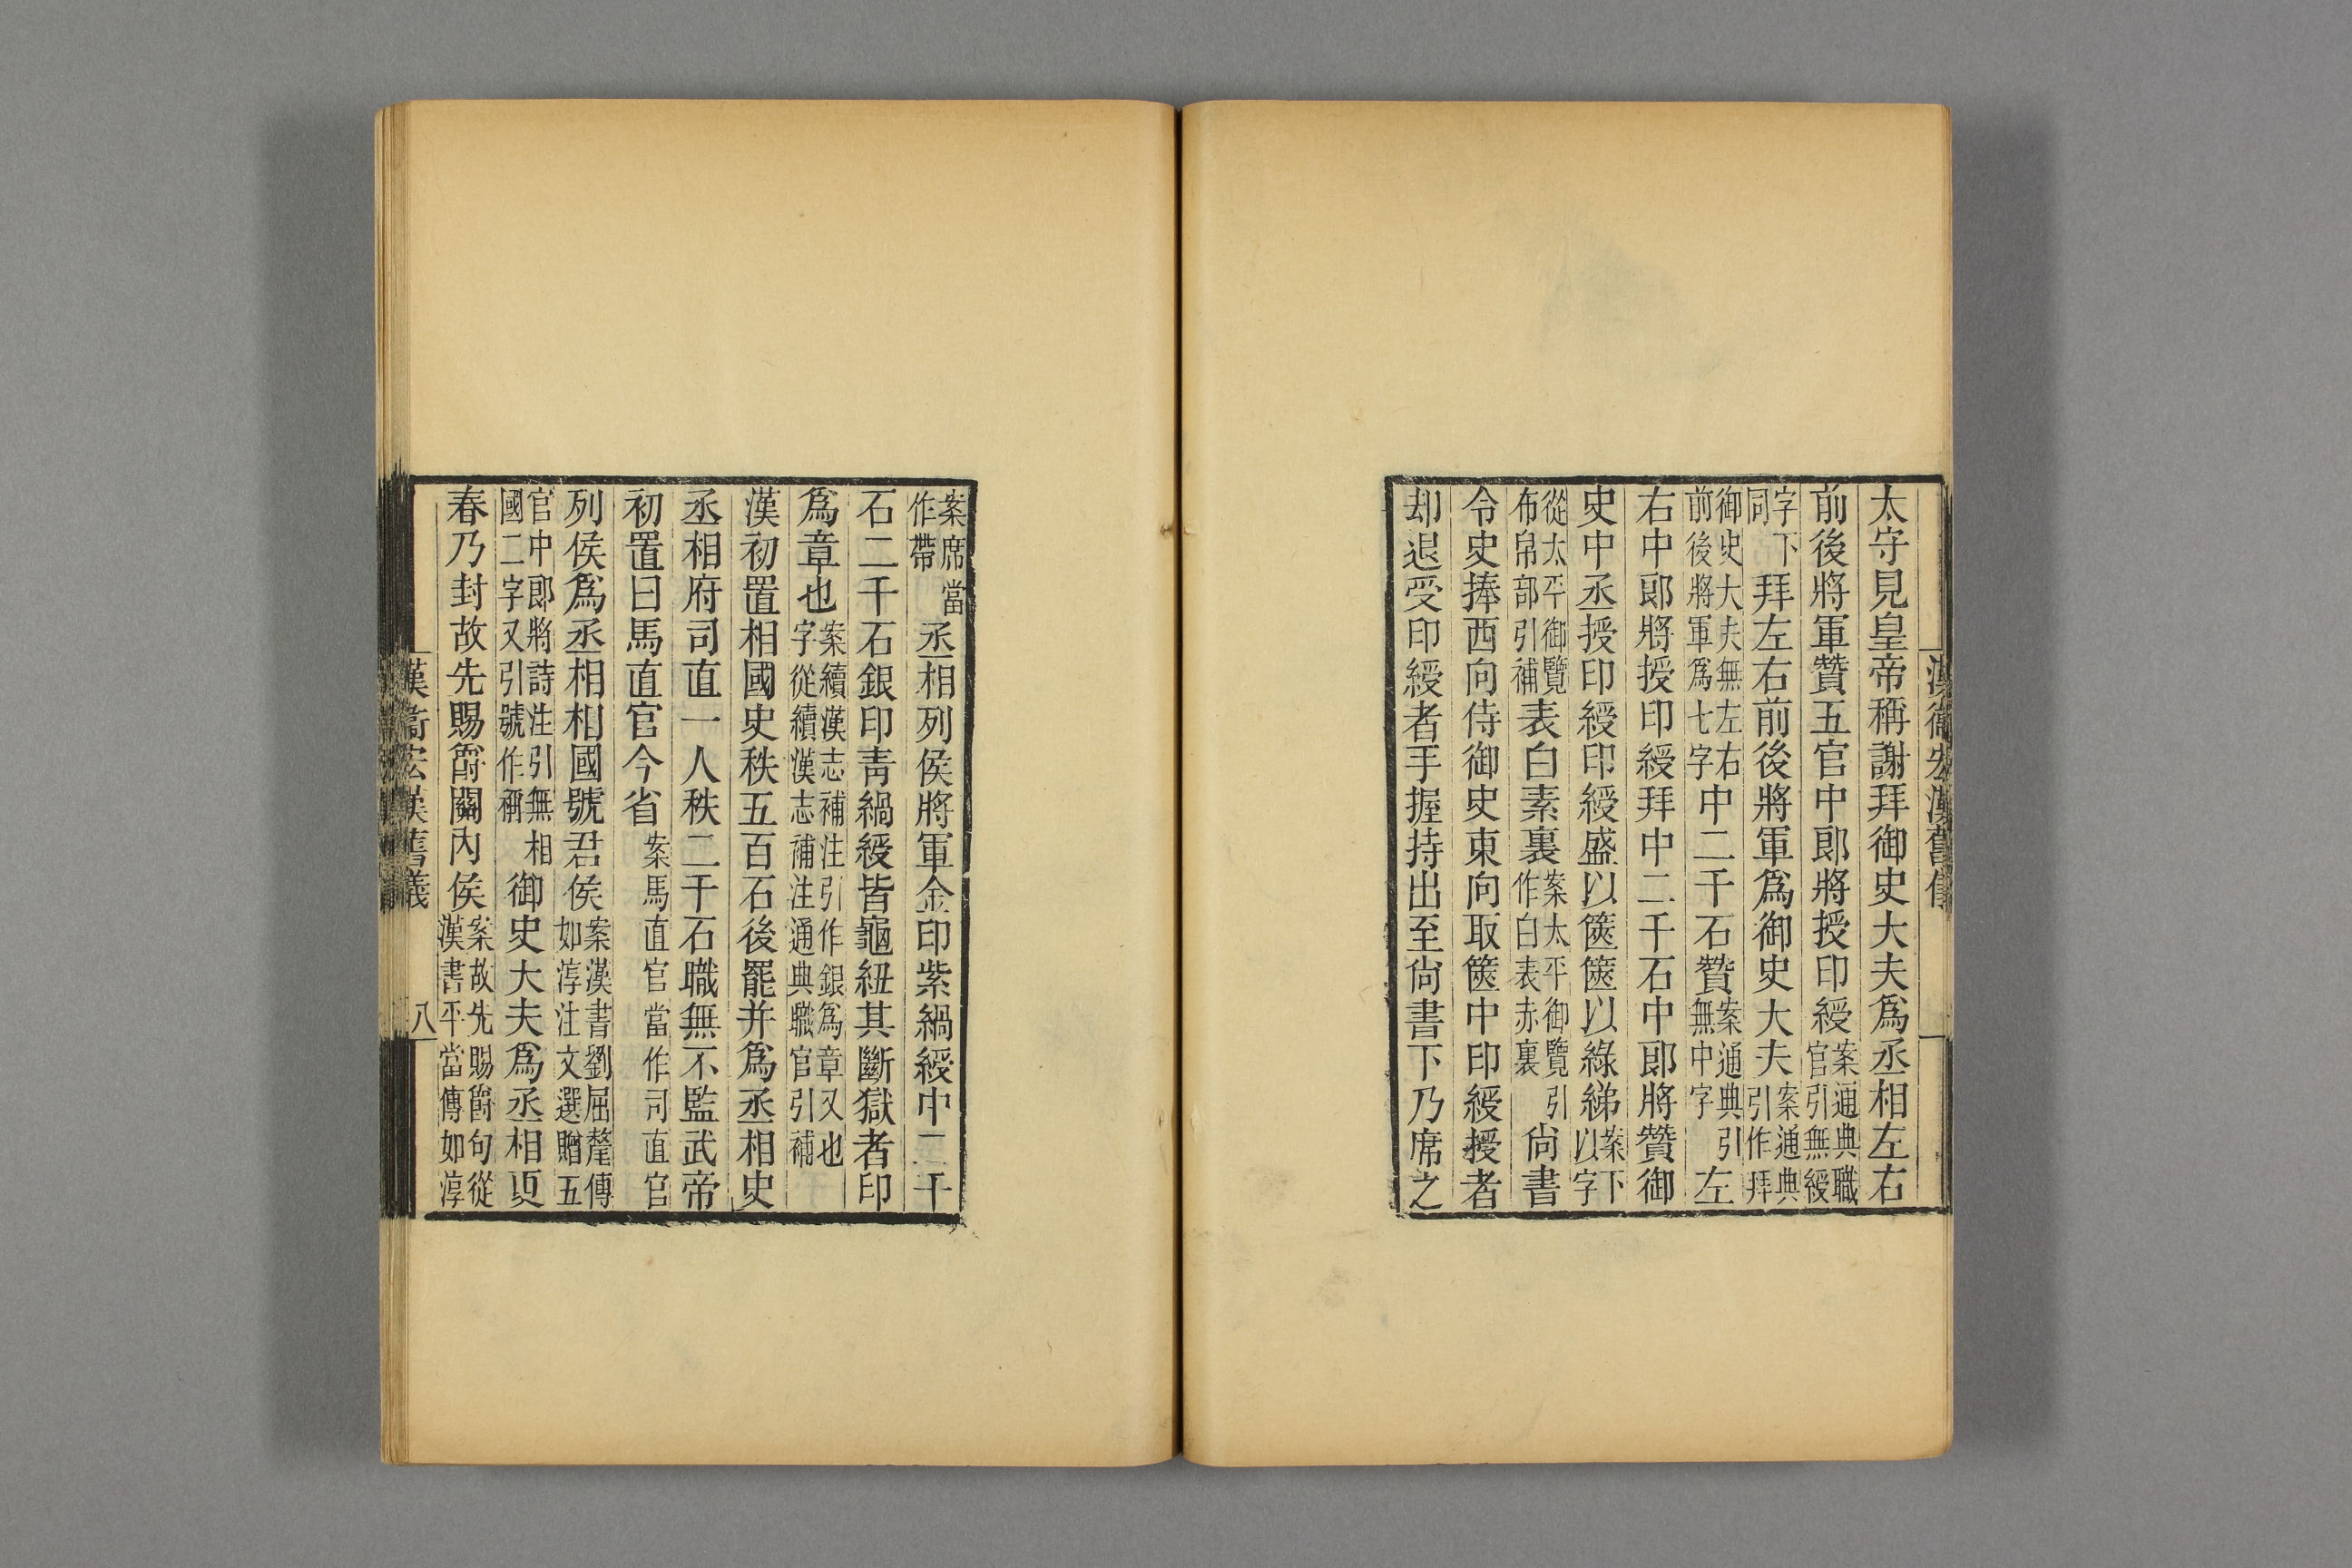 漢衞宏漢舊儀
太守見皇帝稱謝拜御史大夫爲丞相左右
前後將軍贊五官中郎將授印綬案通典職官引無綬
字下同拜左右前後將軍爲御史大夫案通典引作拜
御史大夫無左右前後將軍爲七字中二千石贊案通典引無中字左
右中郎將授印綬拜中二千石中郎將贊御
史中丞授印綬印綬盛以篋篋以綠綈案下以字
從太平御覽布帛部引補表白素裏案太平御覽引作白表赤裏尙書
令史捧西向侍御史東向取篋中印綬授者
却退受印綬者手握持出至尙書下乃席之
案席當作帶丞相列侯將軍金印紫緺綬中二千
石二千石銀印靑緺綬皆龜紐其斷獄者印
爲章也案續漢志補注引作銀爲章又也字從續漢志補注通典職官引補
漢初置相國史秩五百石後罷并爲丞相史
丞相府司直一人秩二千石職無不監武帝
初置曰馬直官今省案馬直官當作司直官
列侯爲丞相相國號君侯案漢書劉屈氂傳如淳注文選贈五
官中郎將詩注引無相國二字又引號作稱御史大夫爲丞相更
春乃封故先賜爵關內侯案故先賜爵句從漢書平當傳如淳
漢衞宏漢舊儀
八